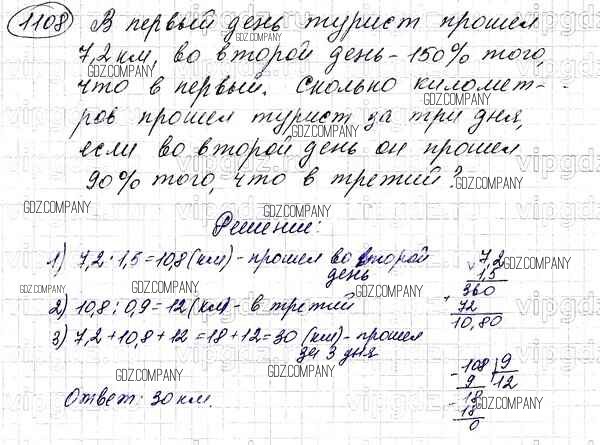 1108 В первый день турист прошел
7,2 км, во второй день - 150% того,
что в первый. Сколько километ-
ров прошел турист за три дня,
если во второй день он прошел
90% того, что в третий?
Решение:
1) 7,2 · 1,5 = 10,8 (км) - прошел во второй
день
2) 10,8 : 0,9 = 12 (км) - в третий
3) 7,2 + 10,8 + 12 = 18 + 12 = 30 (км) - прошел
за 3 дня
Ответ: 30 км.
× 7,2
1,5
360
+ 72
10,80
- 108 9
9 12
- 18
18
0
GDZ.COMPANY
GDZ.COMPANY
GDZ.COMPANY
GDZ.COMPANY
GDZ.COMPANY
GDZ.COMPANY
GDZ.COMPANY
GDZ.COMPANY
GDZ.COMPANY
GDZ.COMPANY
GDZ.COMPANY
GDZ.COMPANY
GDZ.COMPANY